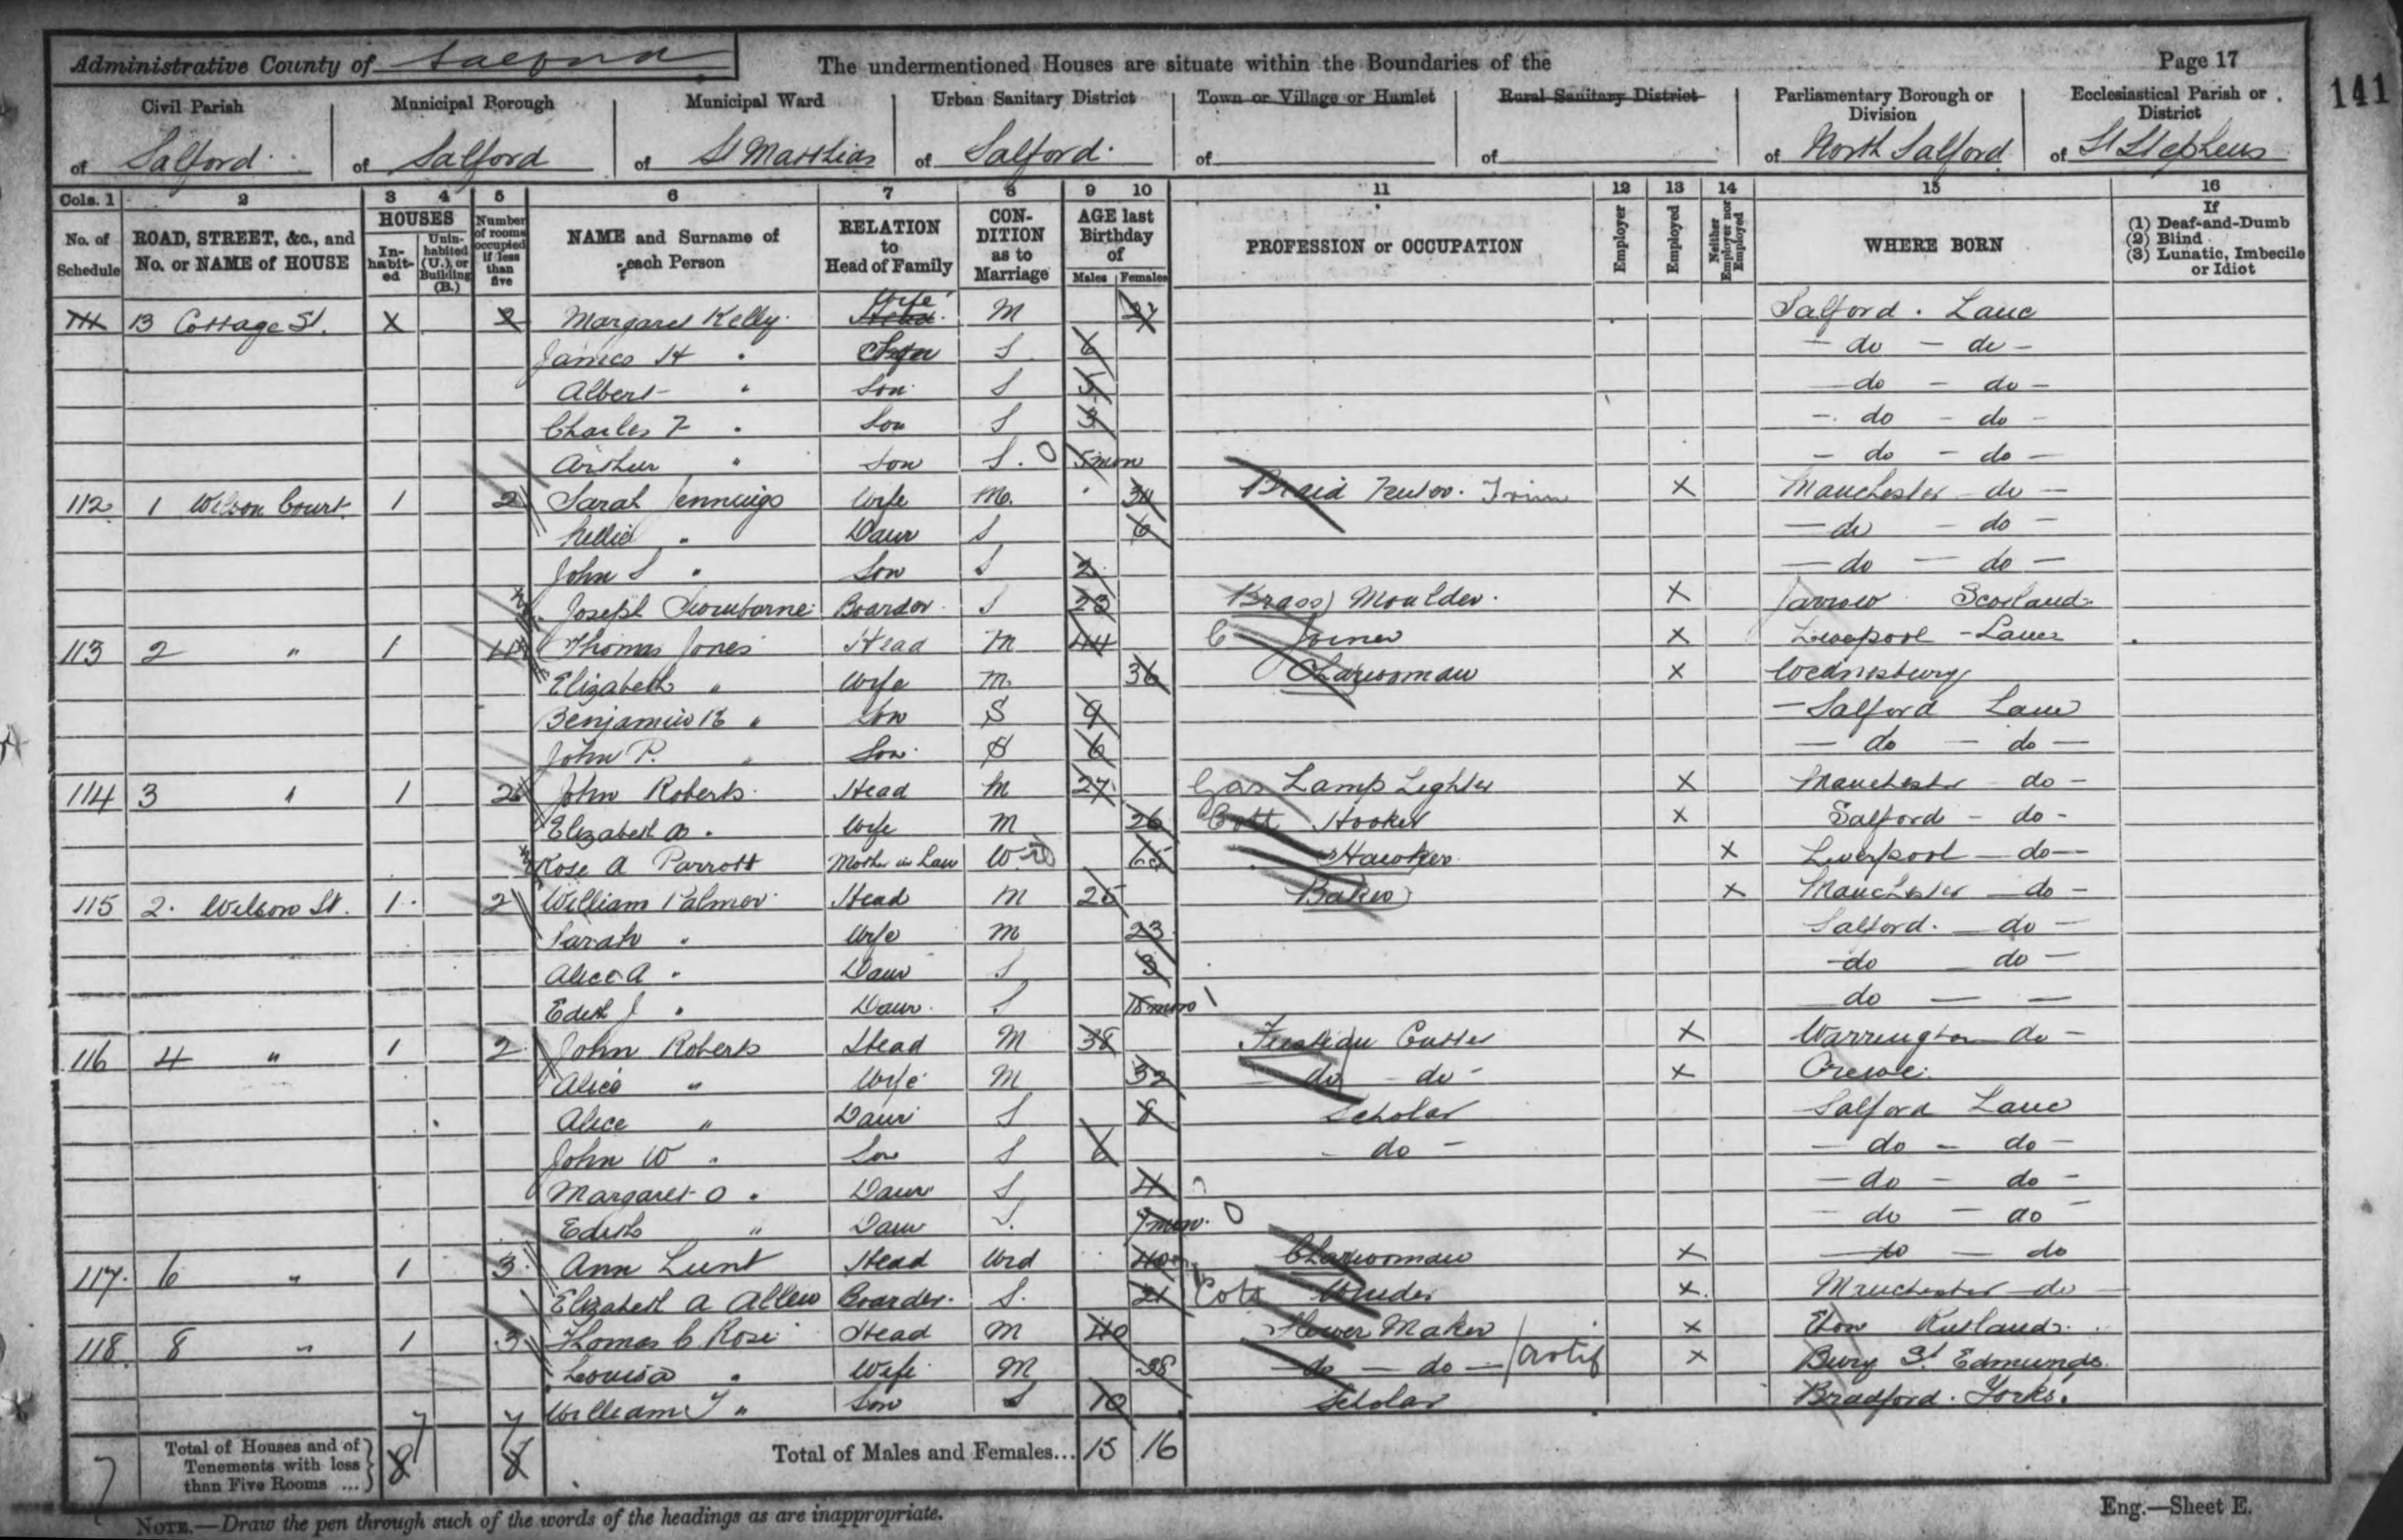 Administrative County of Salford The undermentioned Houses are situate within the Boundaries of the Page 17
141
Civil Parish Municipal Borough Municipal Ward Urban Sanitary District Town or Village or Hamlet Rural Sanitary District Parliamentary Borough or Division Ecclesiastical Parish or District
of Salford of Salford of St Matthias of Salford of of of North Salford of St Stephens
Cols. 1 2 3 4 5 6 7 8 9 10 11 12 13 14 15 16
No. of Schedule ROAD, STREET, &c., and No. or NAME of HOUSE HOUSES In-habit-ed Unin-habited (U.), or Building (B.) Number of rooms occupied if less than five NAME and Surname of each Person RELATION to Head of Family CON-DITION as to Marriage AGE last Birthday of Males Females PROFESSION or OCCUPATION Employer Employed Neither Employer nor Employed WHERE BORN If (1) Deaf-and-Dumb (2) Blind (3) Lunatic, Imbecile or Idiot
111 13 Cottage St. X 2 Margaret Kelly Wife Head M 27 Salford Lanc
James H " Son S 6 - do - do -
Albert " Son S 5 - do - do -
Charles F " Son S 3 - do - do -
Arthur " Son S. 0 5 mon - do - do -
112 1 Wilson Court 1 2 Sarah Jennings Wife M. 34 Braid Trim X Manchester do -
Nellie " Daur S 6 - do - do -
John S " Son S 2 - do - do -
Joseph Boarder S 23 Brass Moulder X Jarrow Scotland
113 2 " 1 Thomas Jones Head M 44 Joiner X Liverpool - Lanc
Elizabeth " Wife M 36 Charwoman X Wednesbury
Benjamin " Son S 9 - Salford Lanc
John P. " Son S 6 - do - do -
114 3 " 1 2 John Roberts Head M 27 Gas Lamp Lighter X Manchester do -
Elizabeth " Wife M 26 Cott Hooker X Salford - do -
Rose A Parrott Mother in Law Wid 65 Hawker X Liverpool - do -
115 2 Wilson St. 1 2 William Palmer Head M 25 Baker X Manchester - do -
Sarah " Wife M 23 Salford - do -
Alice A " Daur S 3 - do - do -
Edith J " Daur S 18 mon 1 do - -
116 4 " 1 2 John Roberts Head M 38 Fustian Cutter X Warrington do -
Alice " Wife M 32 do - do - X Crewe
Alice " Daur S 8 Scholar Salford Lanc
John W " Son S 6 - do - - do - do -
Margaret O " Daur S 4 - do - do -
Edith " Daur S. 9 mon. 0 - do - do -
117 6 " 1 3 Ann Lunt Head Wid 40 Charwoman X - do - do
Elizabeth A Allen Boarder S. 21 Cott Winder X Manchester do -
118 8 " 1 3 Thomas C Rose Head M 40 Flower Maker X Rutland
Louisa " Wife M 38 - do - do - / Artif X Bury St Edmunds
William T " Son S 10 Scholar Bradford. Yorks.
7 7
7 Total of Houses and of Tenements with less than Five Rooms ... 8 8 Total of Males and Females... 15 16
NOTE.—Draw the pen through such of the words of the headings as are inappropriate. Eng.—Sheet E.